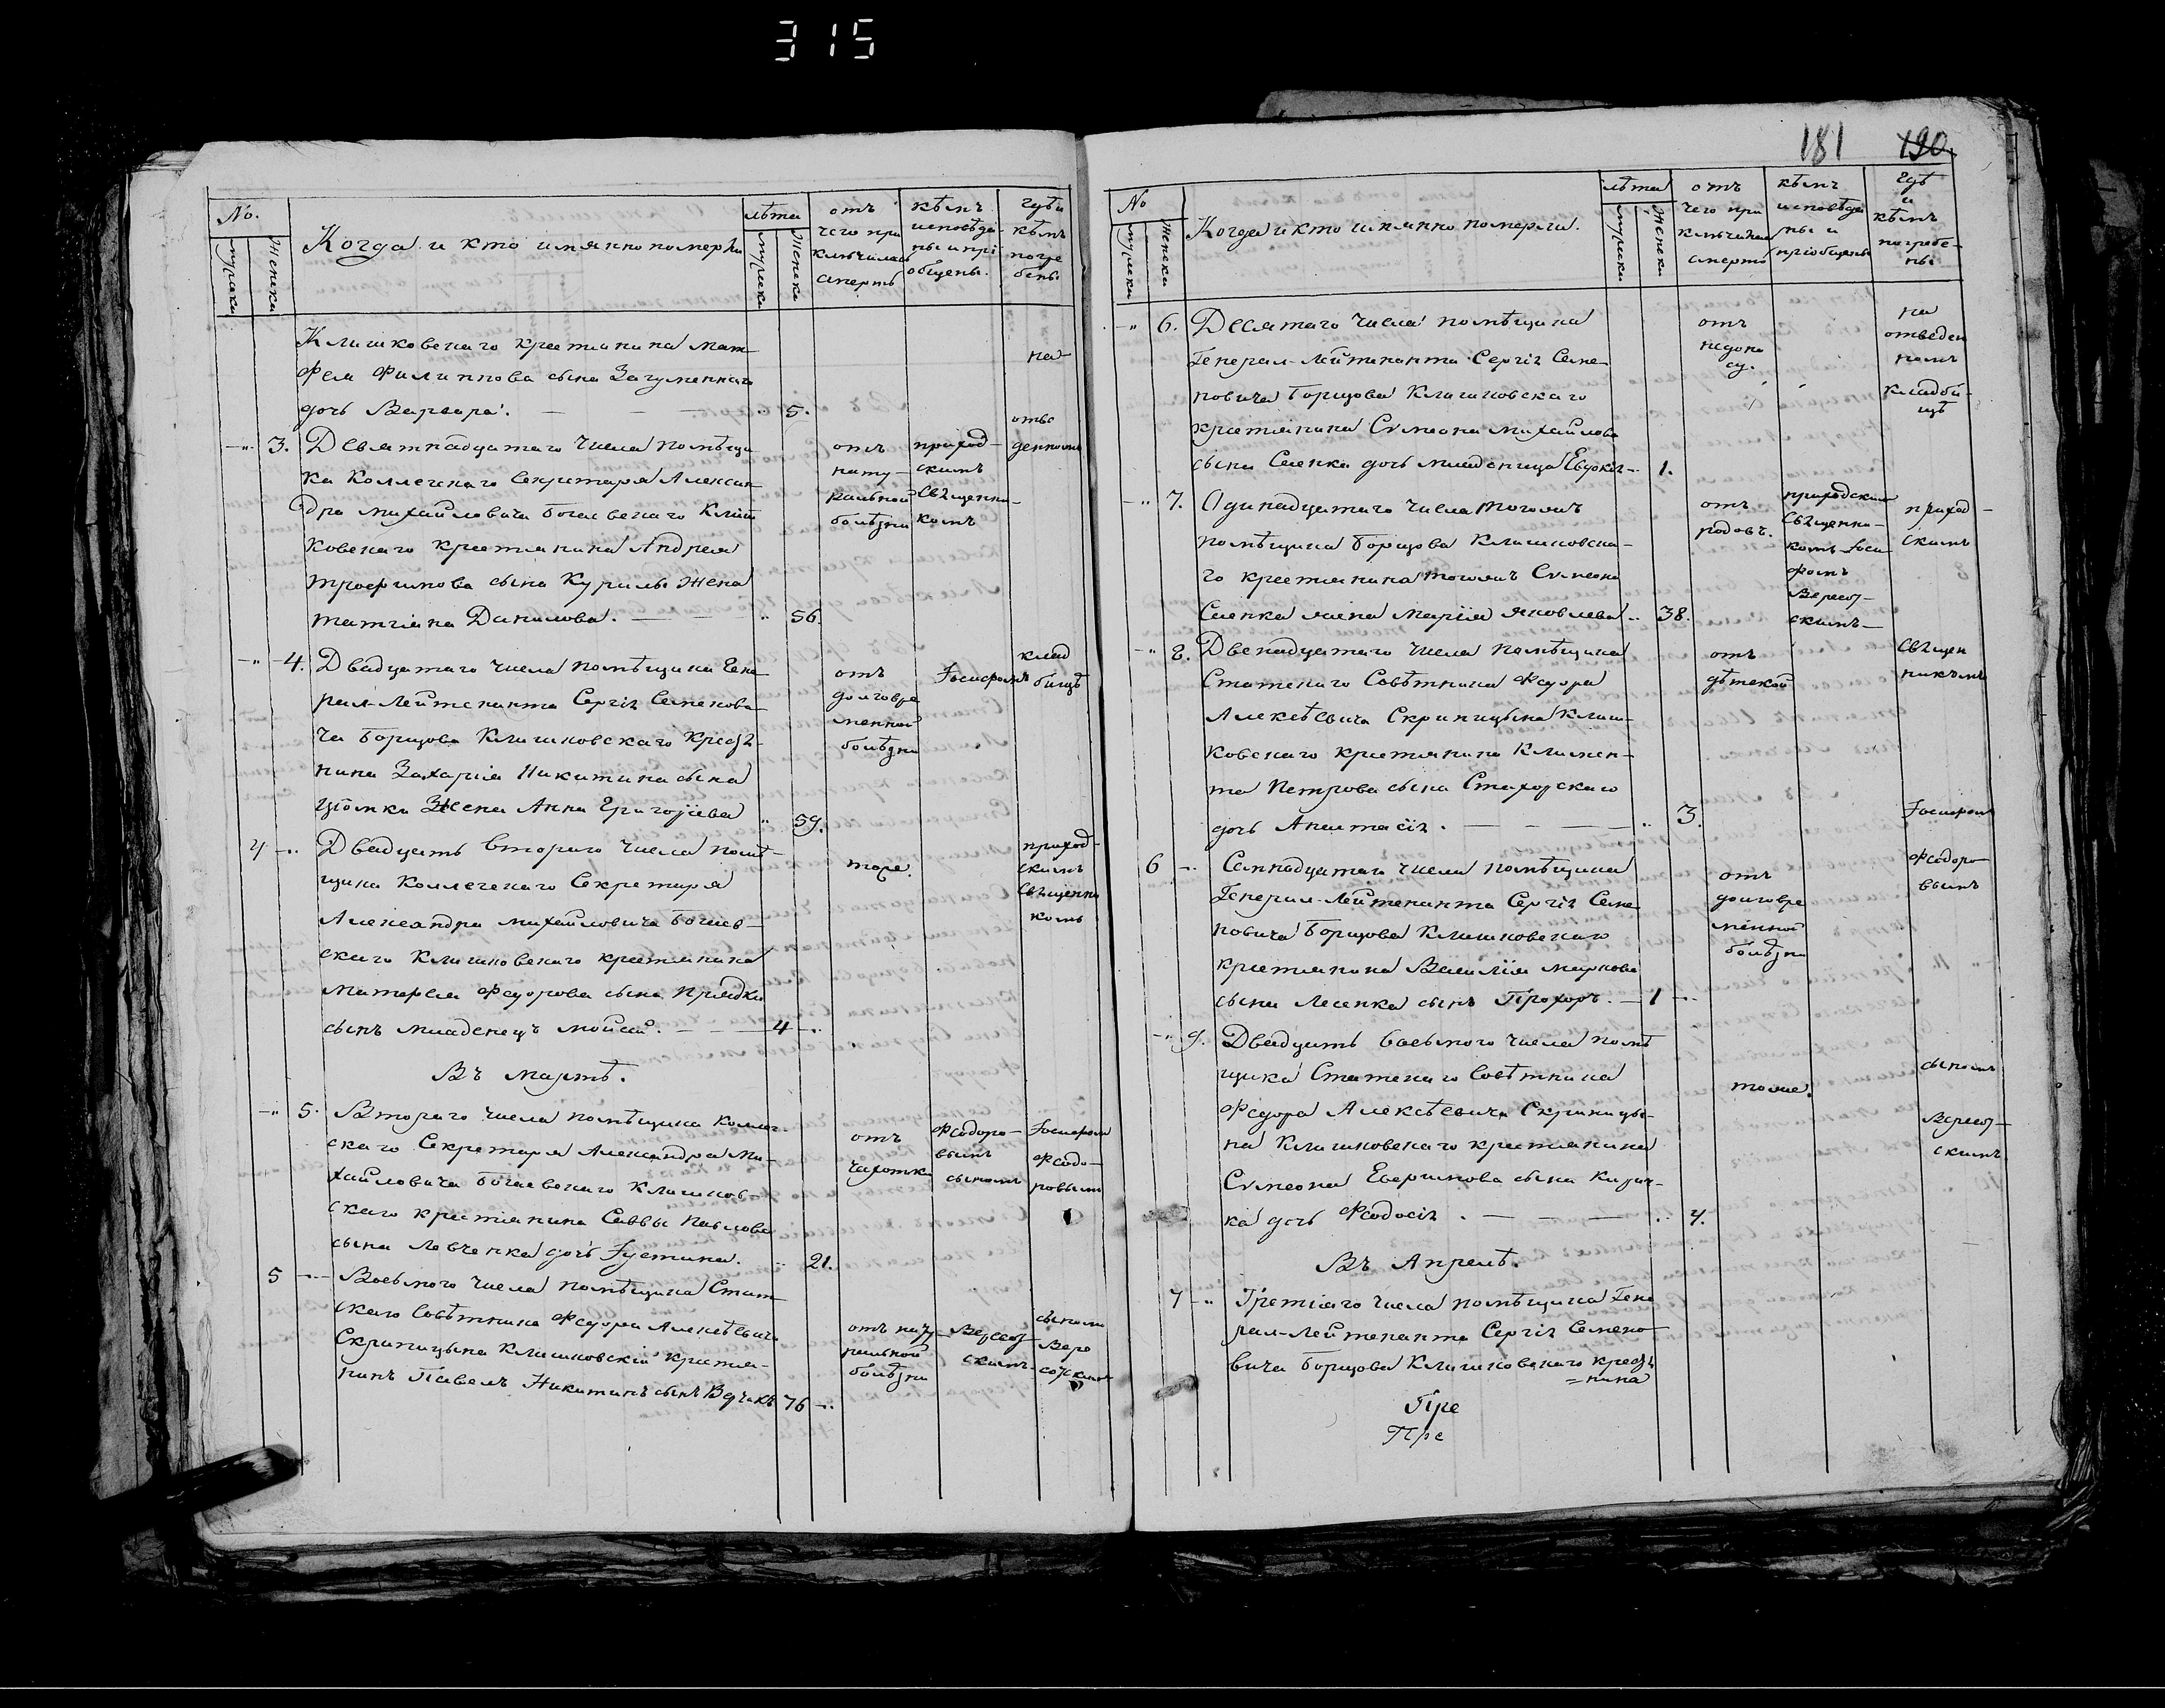 315
No.
мужеска
женска
Когда и кто имянно померли
лѣта
мужеска
женска
отъ чего при
ключилась
смерть
кѣмъ
исповѣда
ны и прі
общены.
гдѣ и
кѣмъ
погре
бены
Клишковскаго крестьянина Мат
фея Филиппова сына Загуменнаго
дочь Варвара. — — .. 5.
на
отве
-.. 3. Девятнадцатаго числа помѣщи
ка Коллежскаго Секретаря Алексан
дра Михайловича Богаевскаго Клиш
ковскаго крестьянина Андрея
Трофимова сына Курилы жена
Татіяна Данилова. — — .. 56.
отъ
нату-
ральной
болѣзни
приход-
скимъ
Священни-
комъ
денномъ
-.. 4. Двадцатаго числа помѣщика Гене
рал-Лейтенанта Сергія Семенови
ча Борщова Клишковскаго крестья-
нина Захарія Никитина сына
жена Анна Григоріева .. 59.
отъ
долговре
менной
болѣзни
Іосифомъ
клад
бищѣ
4 -.. Двадцать втораго числа помѣ-
щика Коллежскаго Секретаря
Александра Михайловича Богаев-
скаго Клишковскаго крестьянина
Матфея Федорова сына Прядки
сынъ младенецъ Мойсей. — — 4 -..
тоже.
приход-
скимъ
Священни
комъ
Въ Мартѣ.
-.. 5. Втораго числа помѣщика Коллеж-
скаго Секретаря Александра Ми-
хайловича Богаевскаго Клишков-
скаго крестьянина Саввы Павлова
сына Левченка дочь Іустина. .. 21.
отъ
чахотки
Феодоро-
вымъ
сыномъ
Іосифомъ
Феодо-
ровымъ
5 -.. Восьмого числа помѣщика Стат
скаго Совѣтника Федора Алексѣевича
Скрипицына Клишковскій крестья-
нинъ Павелъ Никитинъ сынъ 76 -..
отъ нату
ральной
болѣзни
Вересоч-
скимъ.
сыномъ
Вере
сочскимъ
181 190
No
мужеска
женска
Когда и кто имянно померли.
лѣта
мужеска
женска
отъ
чего при
ключилась
смерть
кѣмъ
исповѣда
ны и
пріобщены
гдѣ
и
кѣмъ
погребе-
ны
-.. 6. Десятаго числа помѣщика
Генерал-Лейтенанта Сергія Семе-
новича Борщова Клишковскаго
крестьянина Сѵмеона Михайлова
сына Сленка дочь младеница Евдокія -.. 1.
отъ
недоно
су.
на
отведен
номъ
кладби-
щѣ
-.. 7. Одинадцатаго числа тогожъ
помѣщика Борщова Клишковска-
го крестьянина тогожъ Сѵмеона
Сленка жена Марія Яковлева .. 38.
отъ
родовъ.
приходскимъ
Священни-
комъ Іоси-
фомъ
Вересоч-
скимъ—
приход-
скимъ
-.. 8. Двенадцатаго числа помѣщика
Статскаго Совѣтника Федора
Алексѣевича Скрипицына Клиш-
ковскаго крестьянина Климен-
та Петрова сына Стахорскаго
дочь Анастасія. — — — .. 3.
отъ
дѣтской
Священ
никомъ
Іосифомъ
6 -.. Семнадцатаго числа помѣщика
Генерал-Лейтенанта Сергія Семе
новича Борщова Клишковскаго
крестьянина Василія Маркова
сына Лесенка сынъ Прохоръ. — 1 -..
отъ
долговре
менной
болѣзни
Феодоро
вымъ
-.. 9. Двадцать восьмого числа помѣ
щика Статскаго Совѣтника
Федора Алексѣевича Скрипицы-
на Клишковскаго крестьянина
Сѵмеона Евфимова сына Кирич-
ка дочь Феодосія. — — — .. 4.
тоже.
сыномъ
Вересоч-
скимъ
Въ Апрелѣ.
7 -.. Третіяго числа помѣщика Гене
рал-Лейтенанта Сергія Семено-
вича Борщова Клишковскаго крестья
=нина
Пре
Пре